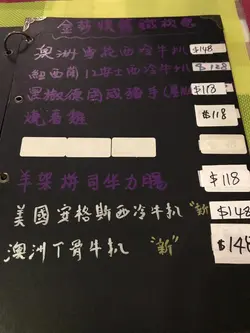 澳洲安格西冷牛扒 $148
紐西蘭12安士西冷牛扒 $128
黑椒德國咸豬手 $118
燒春雞 $118
羊架拼司华力腸 $118
美國安格斯西冷牛扒 "新" $148
澳洲丁骨牛扒 "新" $148